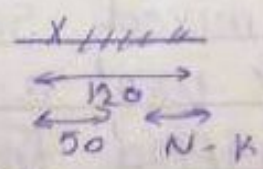 X
120
50 N - K